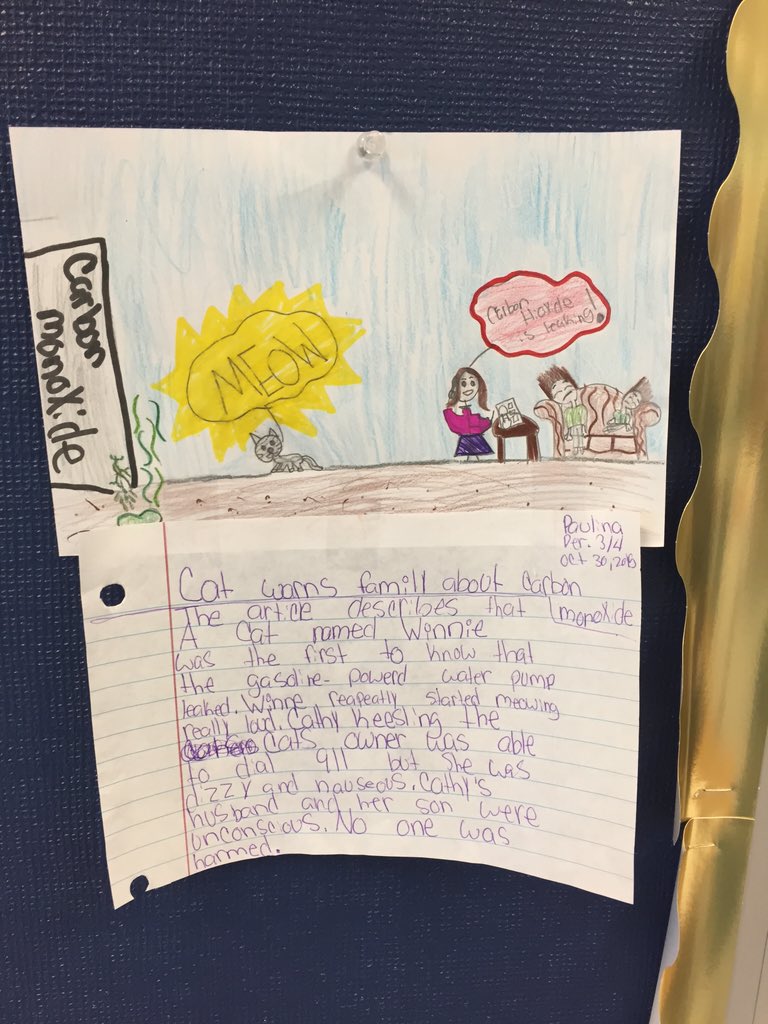 Carbon
monoxide
MEOW
Carbon
is leaking!
Paulina
Per. 3/4
Oct 30, 2015
Cat warns famill about Carbon
monoxide
The article describes that
A Cat named Winnie
was the first to know that
the gasoline-powerd water pump
leaked. Winne reapeatly started meowing
really loud. Cathy Keesling the
cats owner was able
to dial 911 but she was
dizzy and nauseous. Cathy's
husband and her son were
unconscious. No one was
harmed.